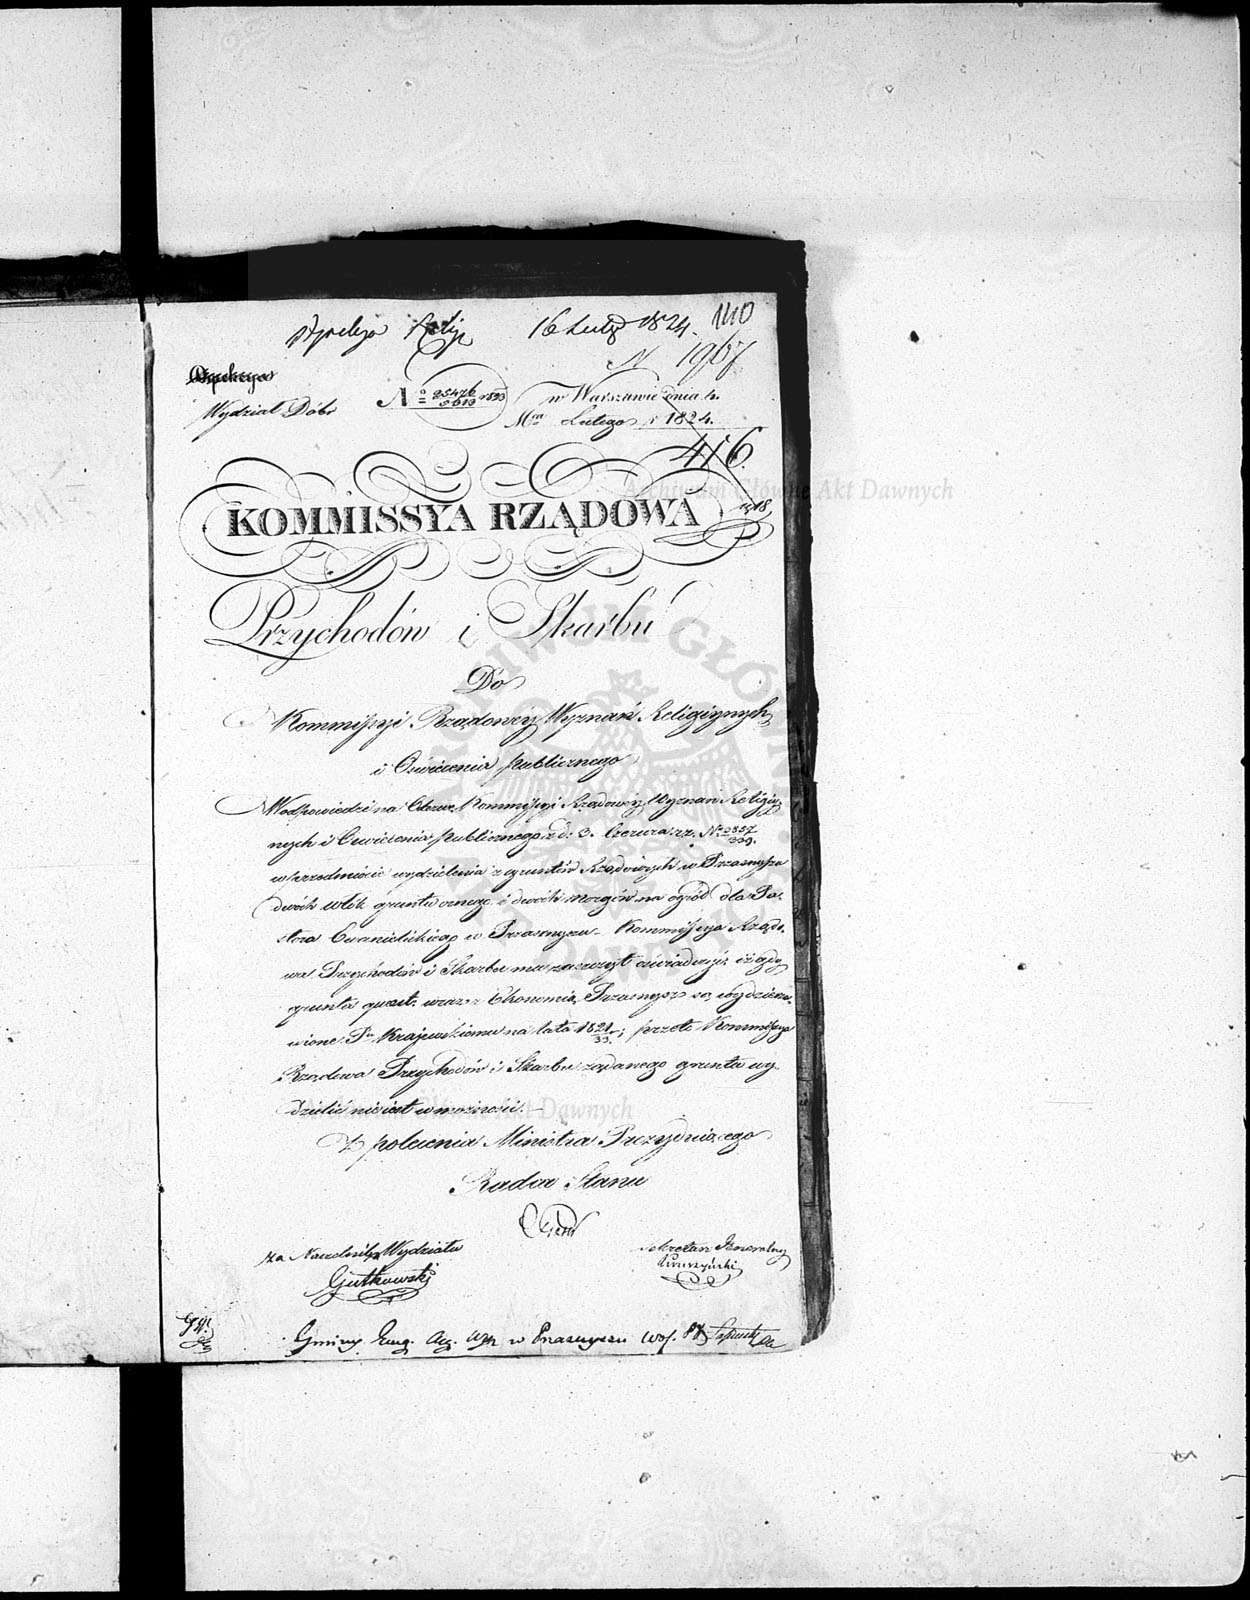 16 Luty 1824. 110
N 1967
Wydział Dóbr
No 25476 1823 w Warszawie dnia 4.
Mca Lutego r 1824.
416
KOMMISSYA RZĄDOWA
Przychodów i Skarbu
Do
Kommissyi Rządowéy Wyznań Religiynych
i Oświécenia Publicznego
W odpowiedzi na Odezwę Kommissyi Rządowéy Wyznań Religiy-
nych i Oświécenia Publicznego z d. 3. Czerwca r.z. No
w przedmiocie wydzielenia z gruntów Rządowych w Przasnyszu
dwóch włók gruntu ornego i dwóch morgów na ogród dla Pa-
stora Ewanielickiego w Przasnyszu – Kommissya Rządo-
wa Przychodów i Skarbu ma zaszczyt oświadczyć, iż gdy
grunta quaest. wraz z Ekonomią Przasnysz są wydzierża-
wione Pu Krajewskiemu na lata 1821/33; przeto Kommissya
Rządowa Przychodów i Skarbu żądanego gruntu wy-
dzielić nie iest w możności. –
Z polecenia Ministra Prezyduiącego
Radca Stanu
za Naczelnika Wydziału Sekretarz Jeneralny
Gutkowski
Gminy Ewg. Aug. w Przasnyszu Woj.
Archiwum Główne Akt Dawnych
Archiwum Główne Akt Dawnych